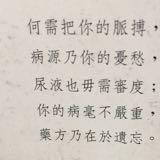 何需把你的脈搏，
病源乃你的憂愁，
尿液也毋需審度；
你的病毫不嚴重，
藥方乃在於遺忘。